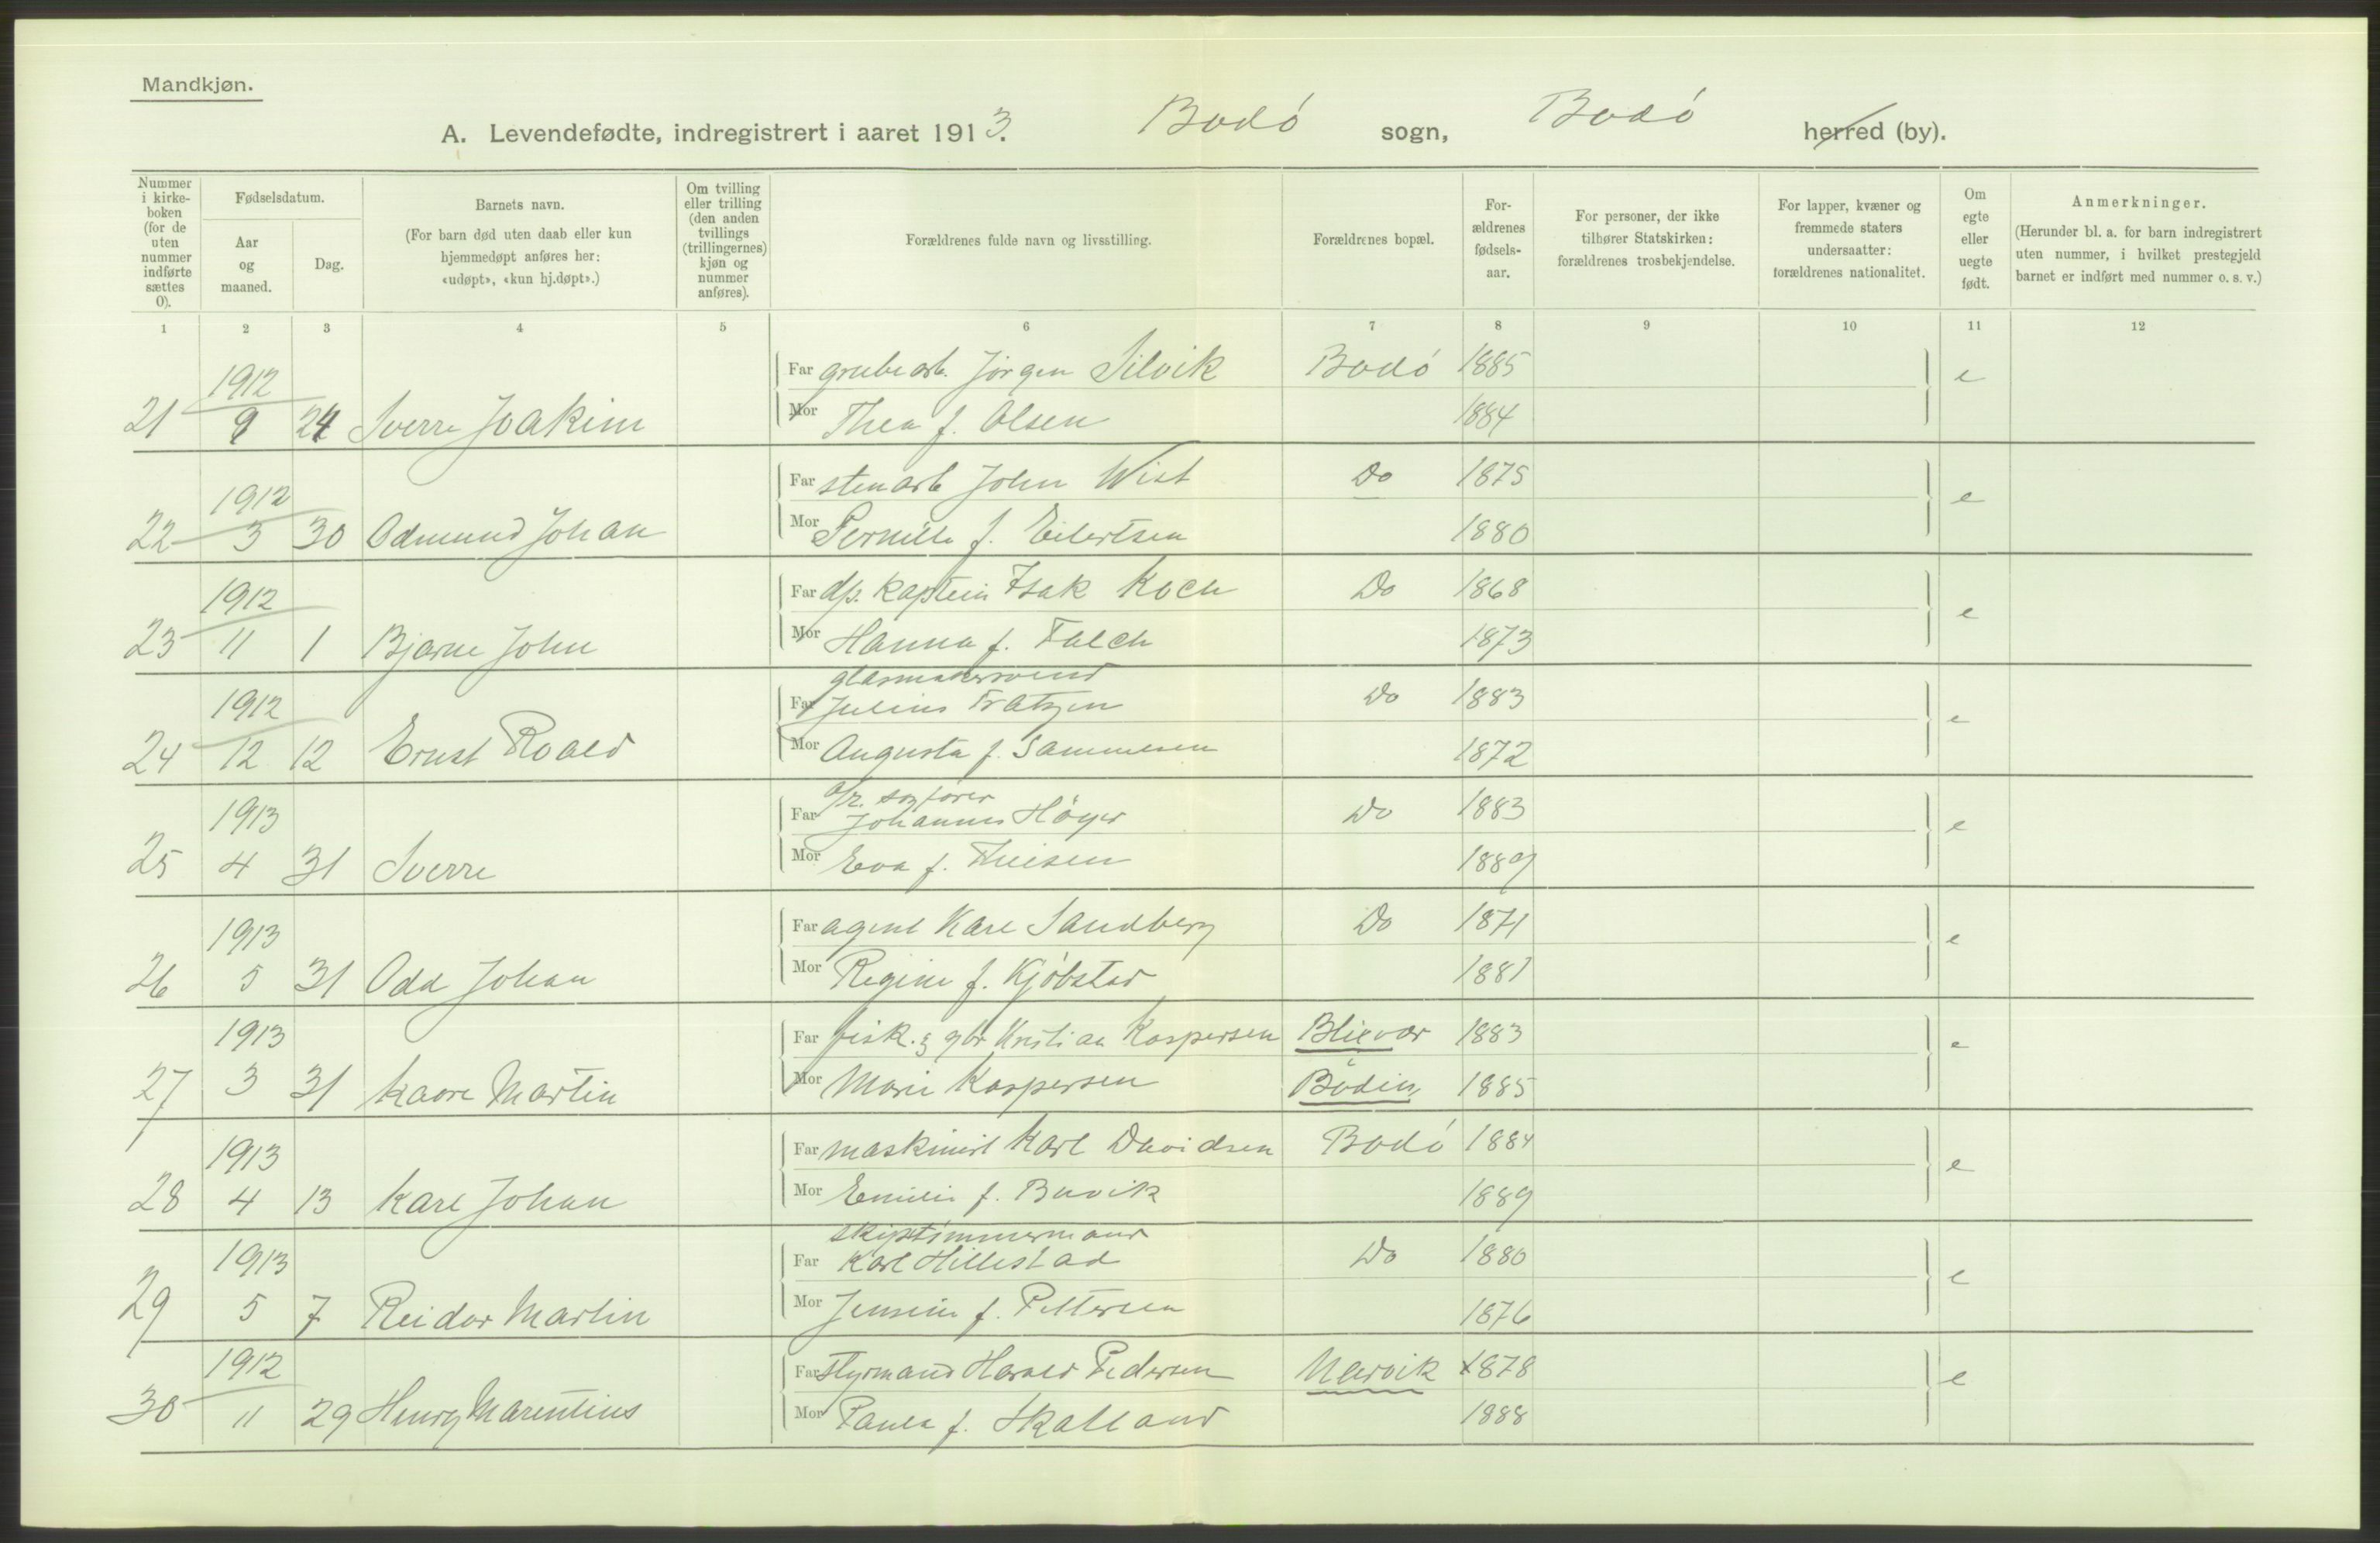 Mandkjøn.
A. Levendefødte, indregistrert i aaret 1913. Bodó sogn, Bodó herred (by).
Nummer i kirke-boken (for de uten nummer indførte sættes 0).
Fødselsdatum.
Aar og maaned.
Dag.
Barnets navn.
(For barn død uten daab eller kun hjemmedøpt anføres her: «udøpt», «kun hj.døpt».)
Om tvilling eller trilling (den anden tvillings (trillingernes) kjøn og nummer anføres).
Forældrenes fulde navn og livsstilling.
Forældrenes bopæl.
For-ældrenes fødsels-aar.
For personer, der ikke tilhører Statskirken: forældrenes trosbekjendelse.
For lapper, kvæner og fremmede staters undersaatter: forældrenes nationalitet.
Om egte eller uegte født.
Anmerkninger.
(Herunder bl. a. for barn indregistrert uten nummer, i hvilket prestegjeld barnet er indført med nummer o. s. v.)
1 2 3 4 5 6 7 8 9 10 11 12
1912 Far grubearb. Jörgen Silvik Bodó 1885 e
21 9 24 Sverre Joakim Mor Thea f. Olsen 1884
1912 Far stenarb John Wist Do 1875 e
22 3 30 Odmund Johan Mor Pernille f. Eilertsen 1880
1912 Far dp. kaptein Isak Koch Do 1868 e
23 11 1 Bjarne John Mor Hanna f. Falch 1873
glasmestersvend
1912 Far Julius Fratzen Do 1883 e
24 12 12 Ernst Roald Mor Augusta f. Sammelsen 1872
o/r. sagförer
1913 Far Johannes Höyer Do 1883 e
25 4 31 Sverre Mor Eva f. Theisen 1889
1913 Far agent Karl Sandberg Do 1871 e
26 5 31 Odd Johan Mor Regine f. Kjöbstad 1881
1913 Far fisk. & gbr Kristian Kaspersen Blixvær 1883 e
27 3 31 Kaare Martin Mor Marie Kaspersen Bodin, 1885
1913 Far maskinist Karl Davidsen Bodó 1884 e
28 4 13 Karl Johan Mor Emilie f. Buvik 1889
skipstömmermand
1913 Far Karl Hillestad Do 1880 e
29 5 7 Reidar Martin Mor Jensine f. Pettersen 1876
1912 Far styrmand Harald Pedersen Narvik 1878 e
30 11 29 Henry Marentius Mor Paula f. Skalland 1888